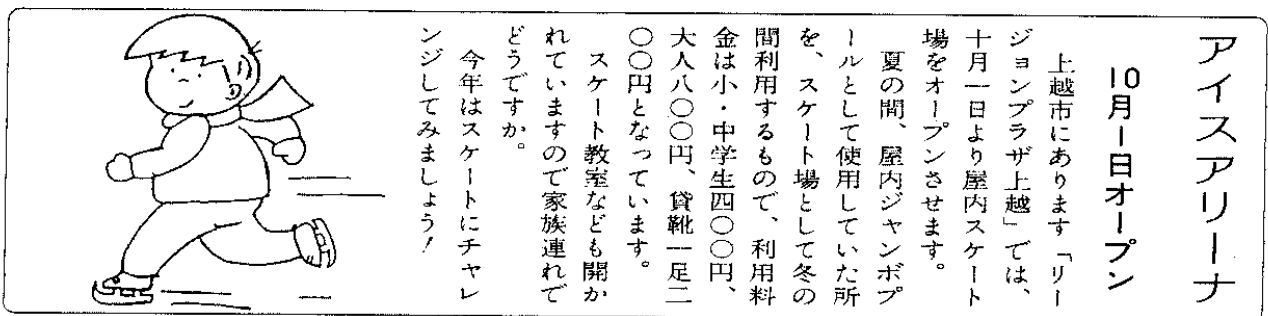 アイスアリーナ
10月1日オープン
上越市にあります「リー
ジョンプラザ上越」では、
十月一日より屋内スケート
場をオープンさせます。
夏の間、屋内ジャンボプ
ールとして使用していた所
を、スケート場として冬の
間利用するもので、利用料
金は小・中学生四〇〇円、
大人八〇〇円、貸靴一足二
〇〇円となっています。
スケート教室なども開か
れていますので家族連れで
どうですか。
今年はスケートにチャレ
ンジしてみましょう!